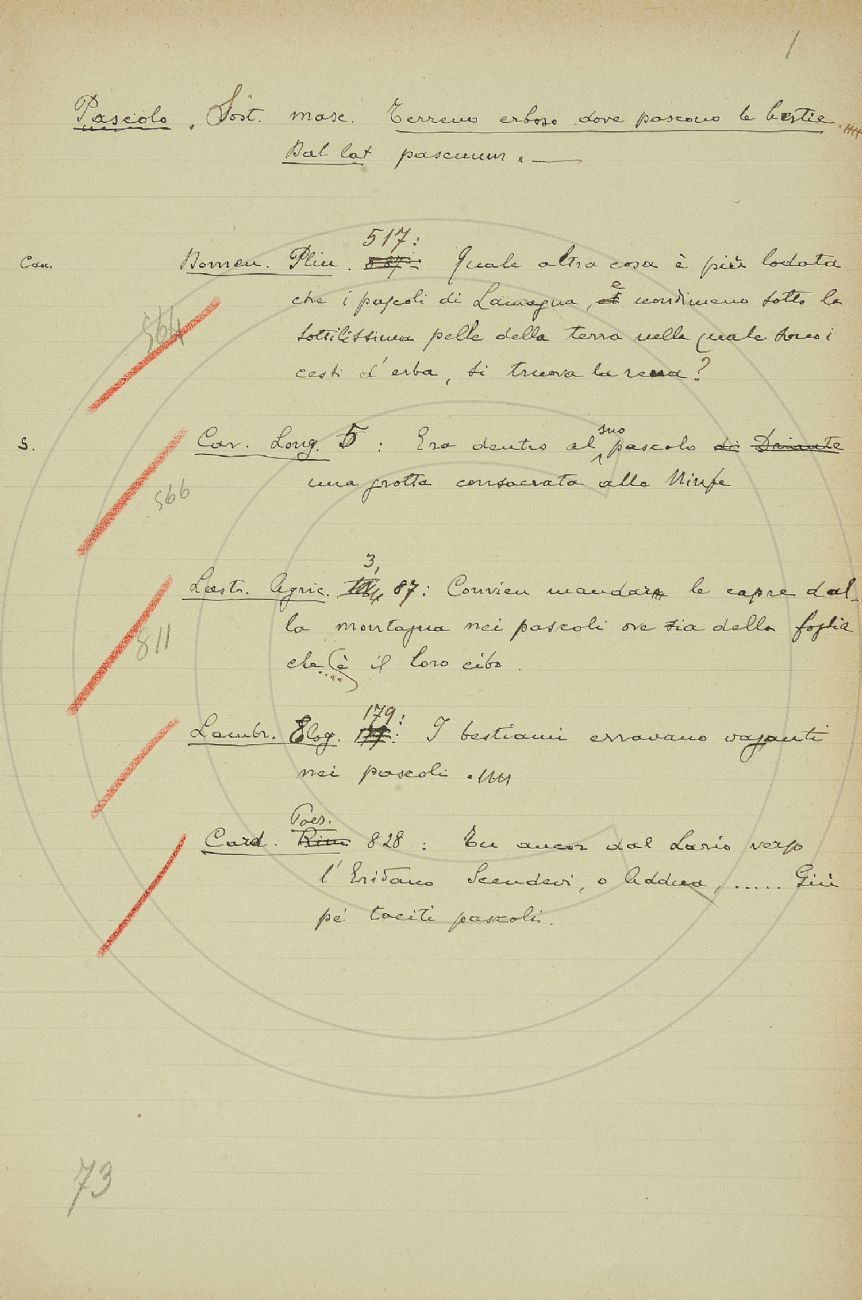 1
Pascolo. Sost. masc. Terreno erboso dove pascono le bestie.
Dal lat pascuum. —
517:
Can. Domen. Plin. 887: Quale altra cosa è più lodata
che i pascoli di Lamagna, e nondimeno sotto la
564
sottilissima pelle della terra nella quale sono i
cesti d'erba, si truova la rena?
suo
S. Car. Long. 5: Era dentro al pascolo di Driante
una grotta consacrata alle Ninfe
566
3,
Lastr. Agric. 87: Convien mandare le capre dal-
la montagna nei pascoli ove sia della foglia
811
che è il loro cibo.
179:
Lambr. Elog. 177: I bestiami erravano vaganti
nei pascoli.
Poes.
Card. Rim. 828: Tu ancor dal Lario verso
l'Eridano Scendevi, o Addua, ..... Giù
pe' taciti pascoli.
73